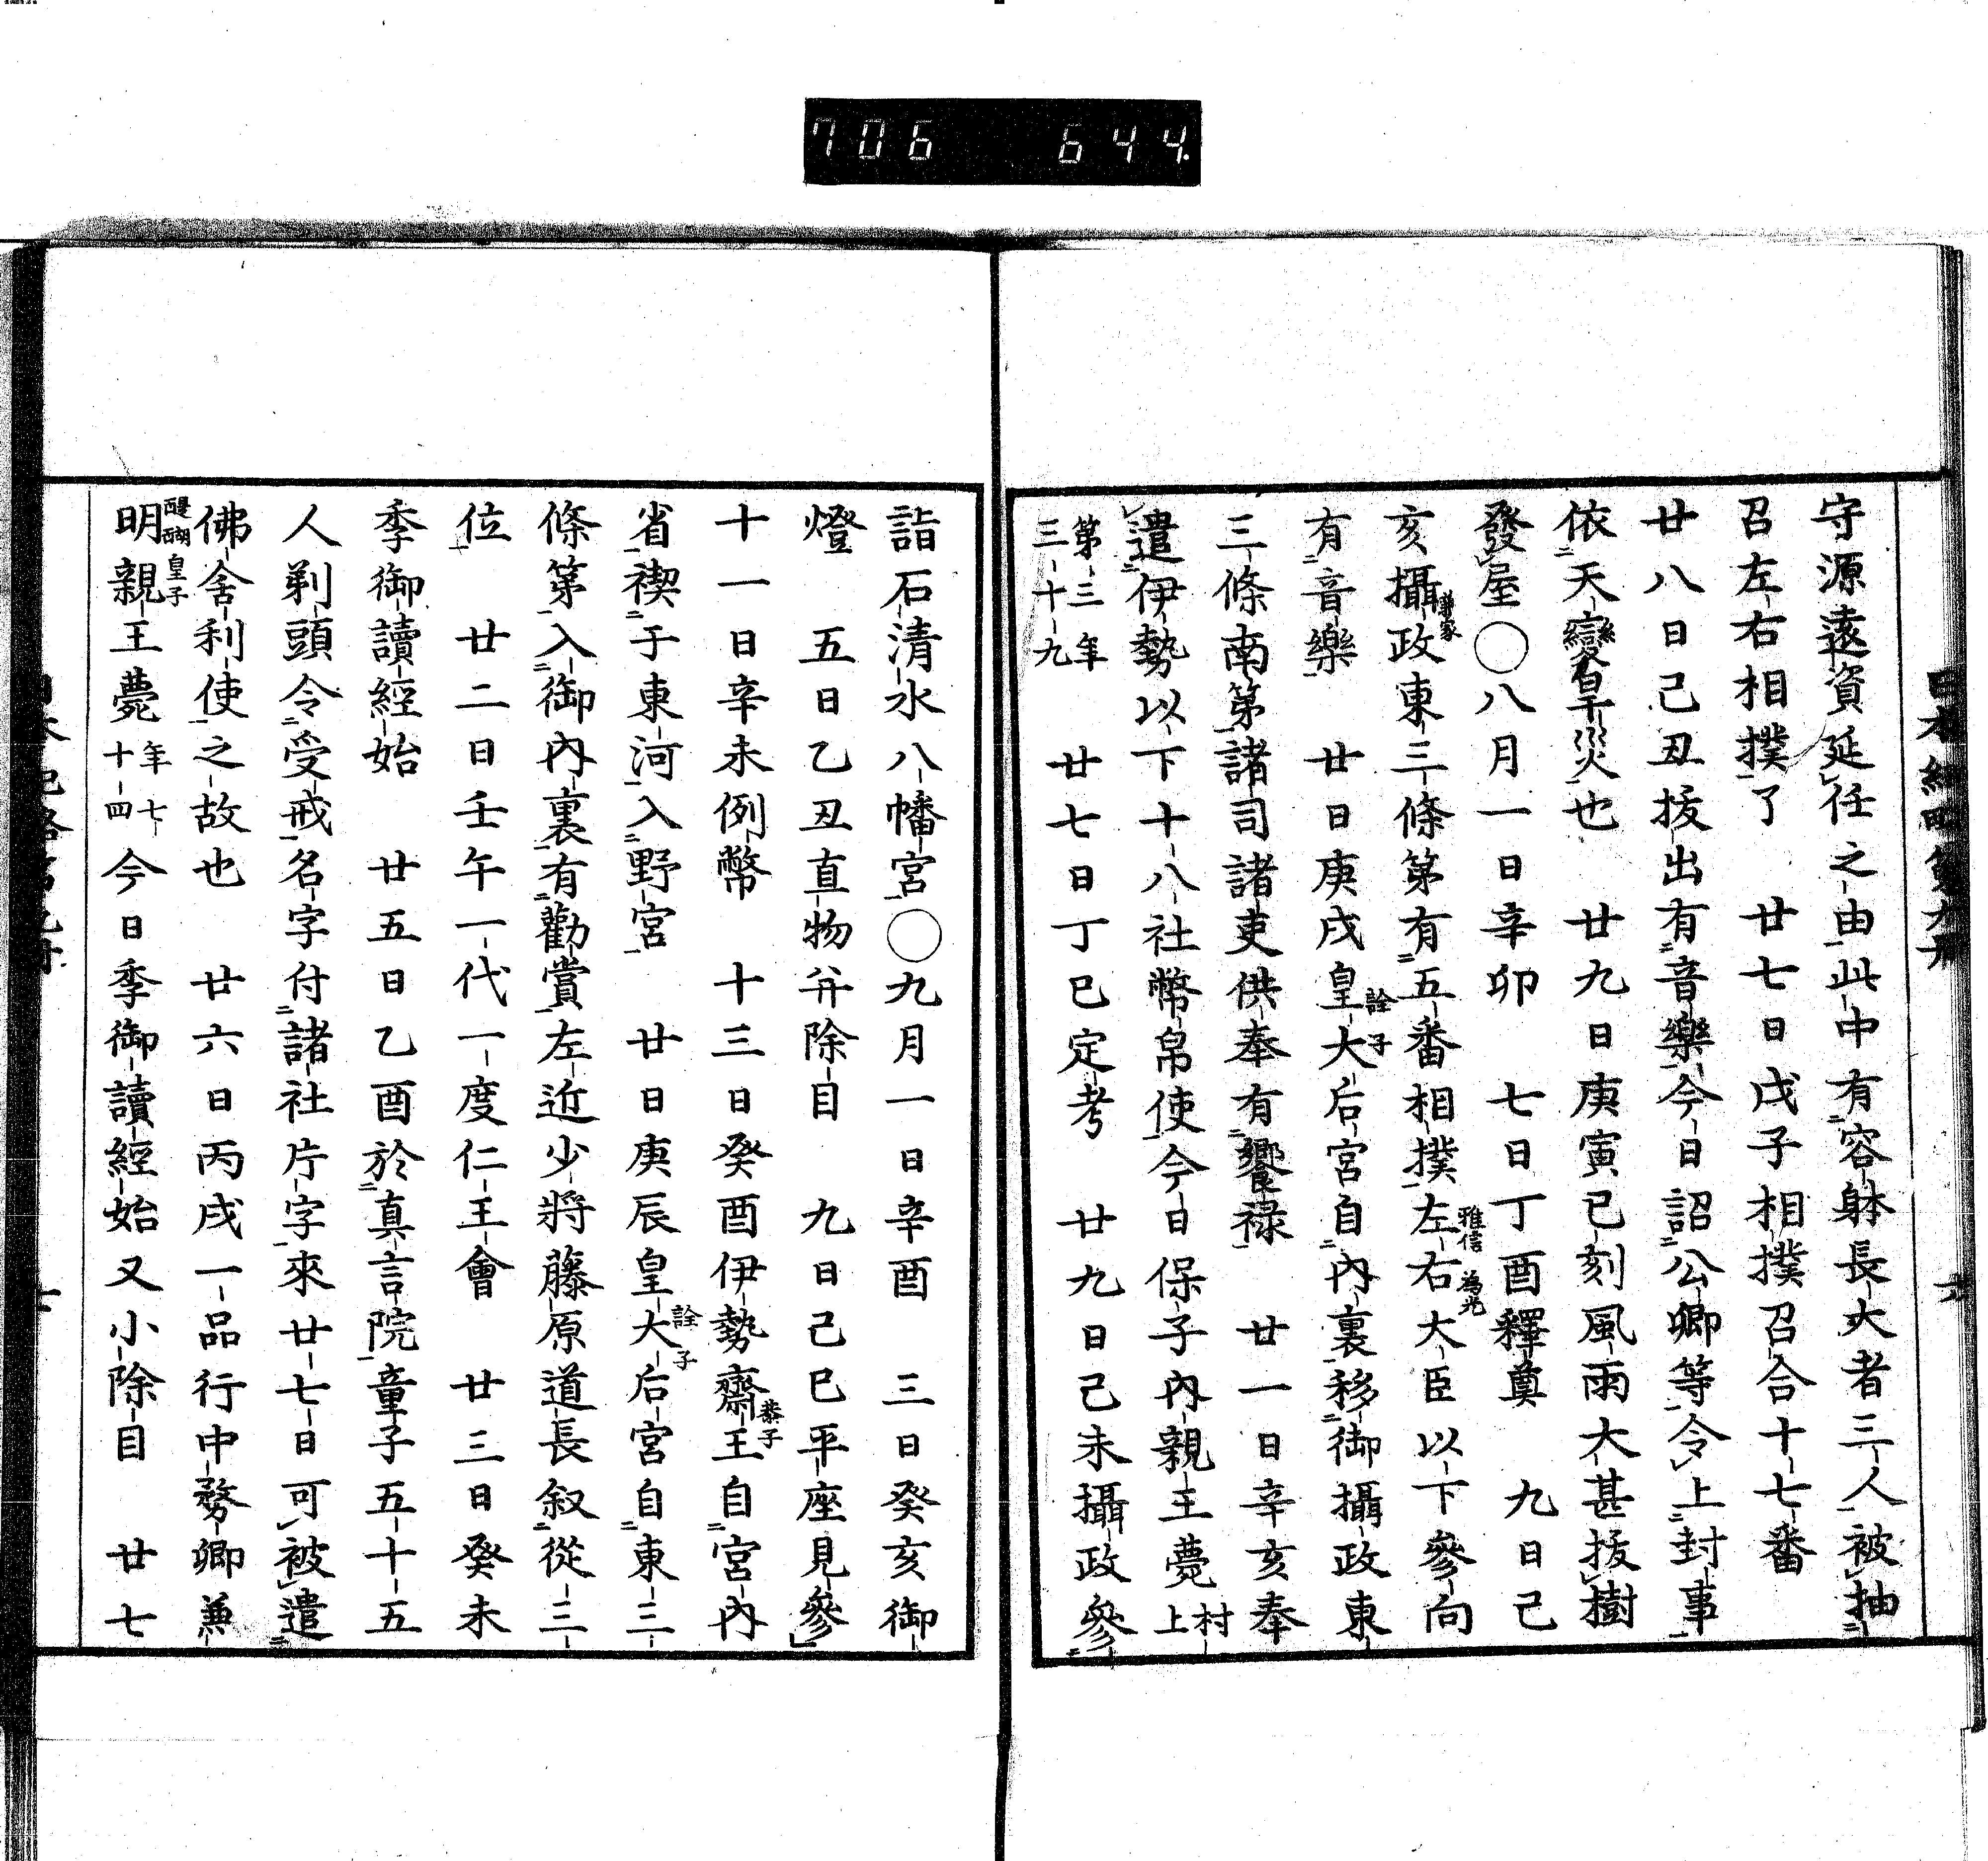 706 644
守源遠資延任之由此中有容躰長大者三人被抽
召左右相撲了 廿七日戊子相撲召合十七番
廿八日己丑拔出有音樂今日詔公卿等令上封事
依天變旱災也 廿九日庚寅已刻風雨大甚拔樹
發屋〇八月一日辛卯 七日丁酉釋奠 九日己
亥攝政兼家東三條第有五番相撲左雅信右為光大臣以下參向
有音樂 廿日庚戌皇大詮子后宮自內裏移御攝政東
三條南第諸司諸吏供奉有饗祿 廿一日辛亥奉
遣伊勢以下十八社幣帛使今日保子內親王薨村上
第三年三十九 廿七日丁巳定考 廿九日己未攝政參
詣石清水八幡宮〇九月一日辛酉 三日癸亥御
燈 五日乙丑直物并除目 九日己巳平座見參
十一日辛未例幣 十三日癸酉伊勢齋恭子王自宮內
省禊于東河入野宮 廿日庚辰皇大詮子后宮自東三
條第入御內裏有勸賞左近少將藤原道長叙從三
位 廿二日壬午一代一度仁王會 廿三日癸未
季御讀經始 廿五日乙酉於真言院童子五十五
人剃頭令受戒名字付諸社片字來廿七日可被遣
佛舍利使之故也 廿六日丙戌一品行中務卿兼
明醍醐皇子親王薨年七十四今日季御讀經始又小除目 廿七